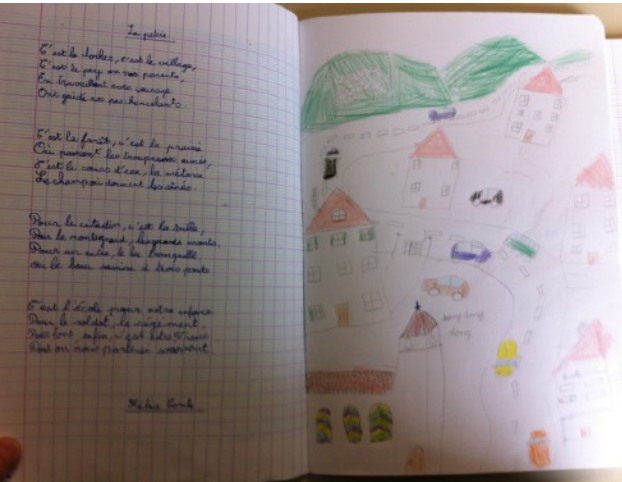 La patrie
C'est le clocher, c'est le village,
C'est le pays où nos parents,
En travaillant avec courage
Ont guidé nos pas chancelants.
C'est la forêt, c'est la prairie
Où paissent les troupeaux
C'est le cours d'eau, la métairie
Le champ où dorment les aînés.
Pour le citadin, c'est la ville,
Pour le montagnard, les grands monts,
Pour un autre, le lac tranquille
où le beau navire à trois ponts
C'est l'école pour notre enfance
Pour le soldat, le régiment
Pour tous, enfin, c'est notre France
Dont on nous parle si souvent
dong